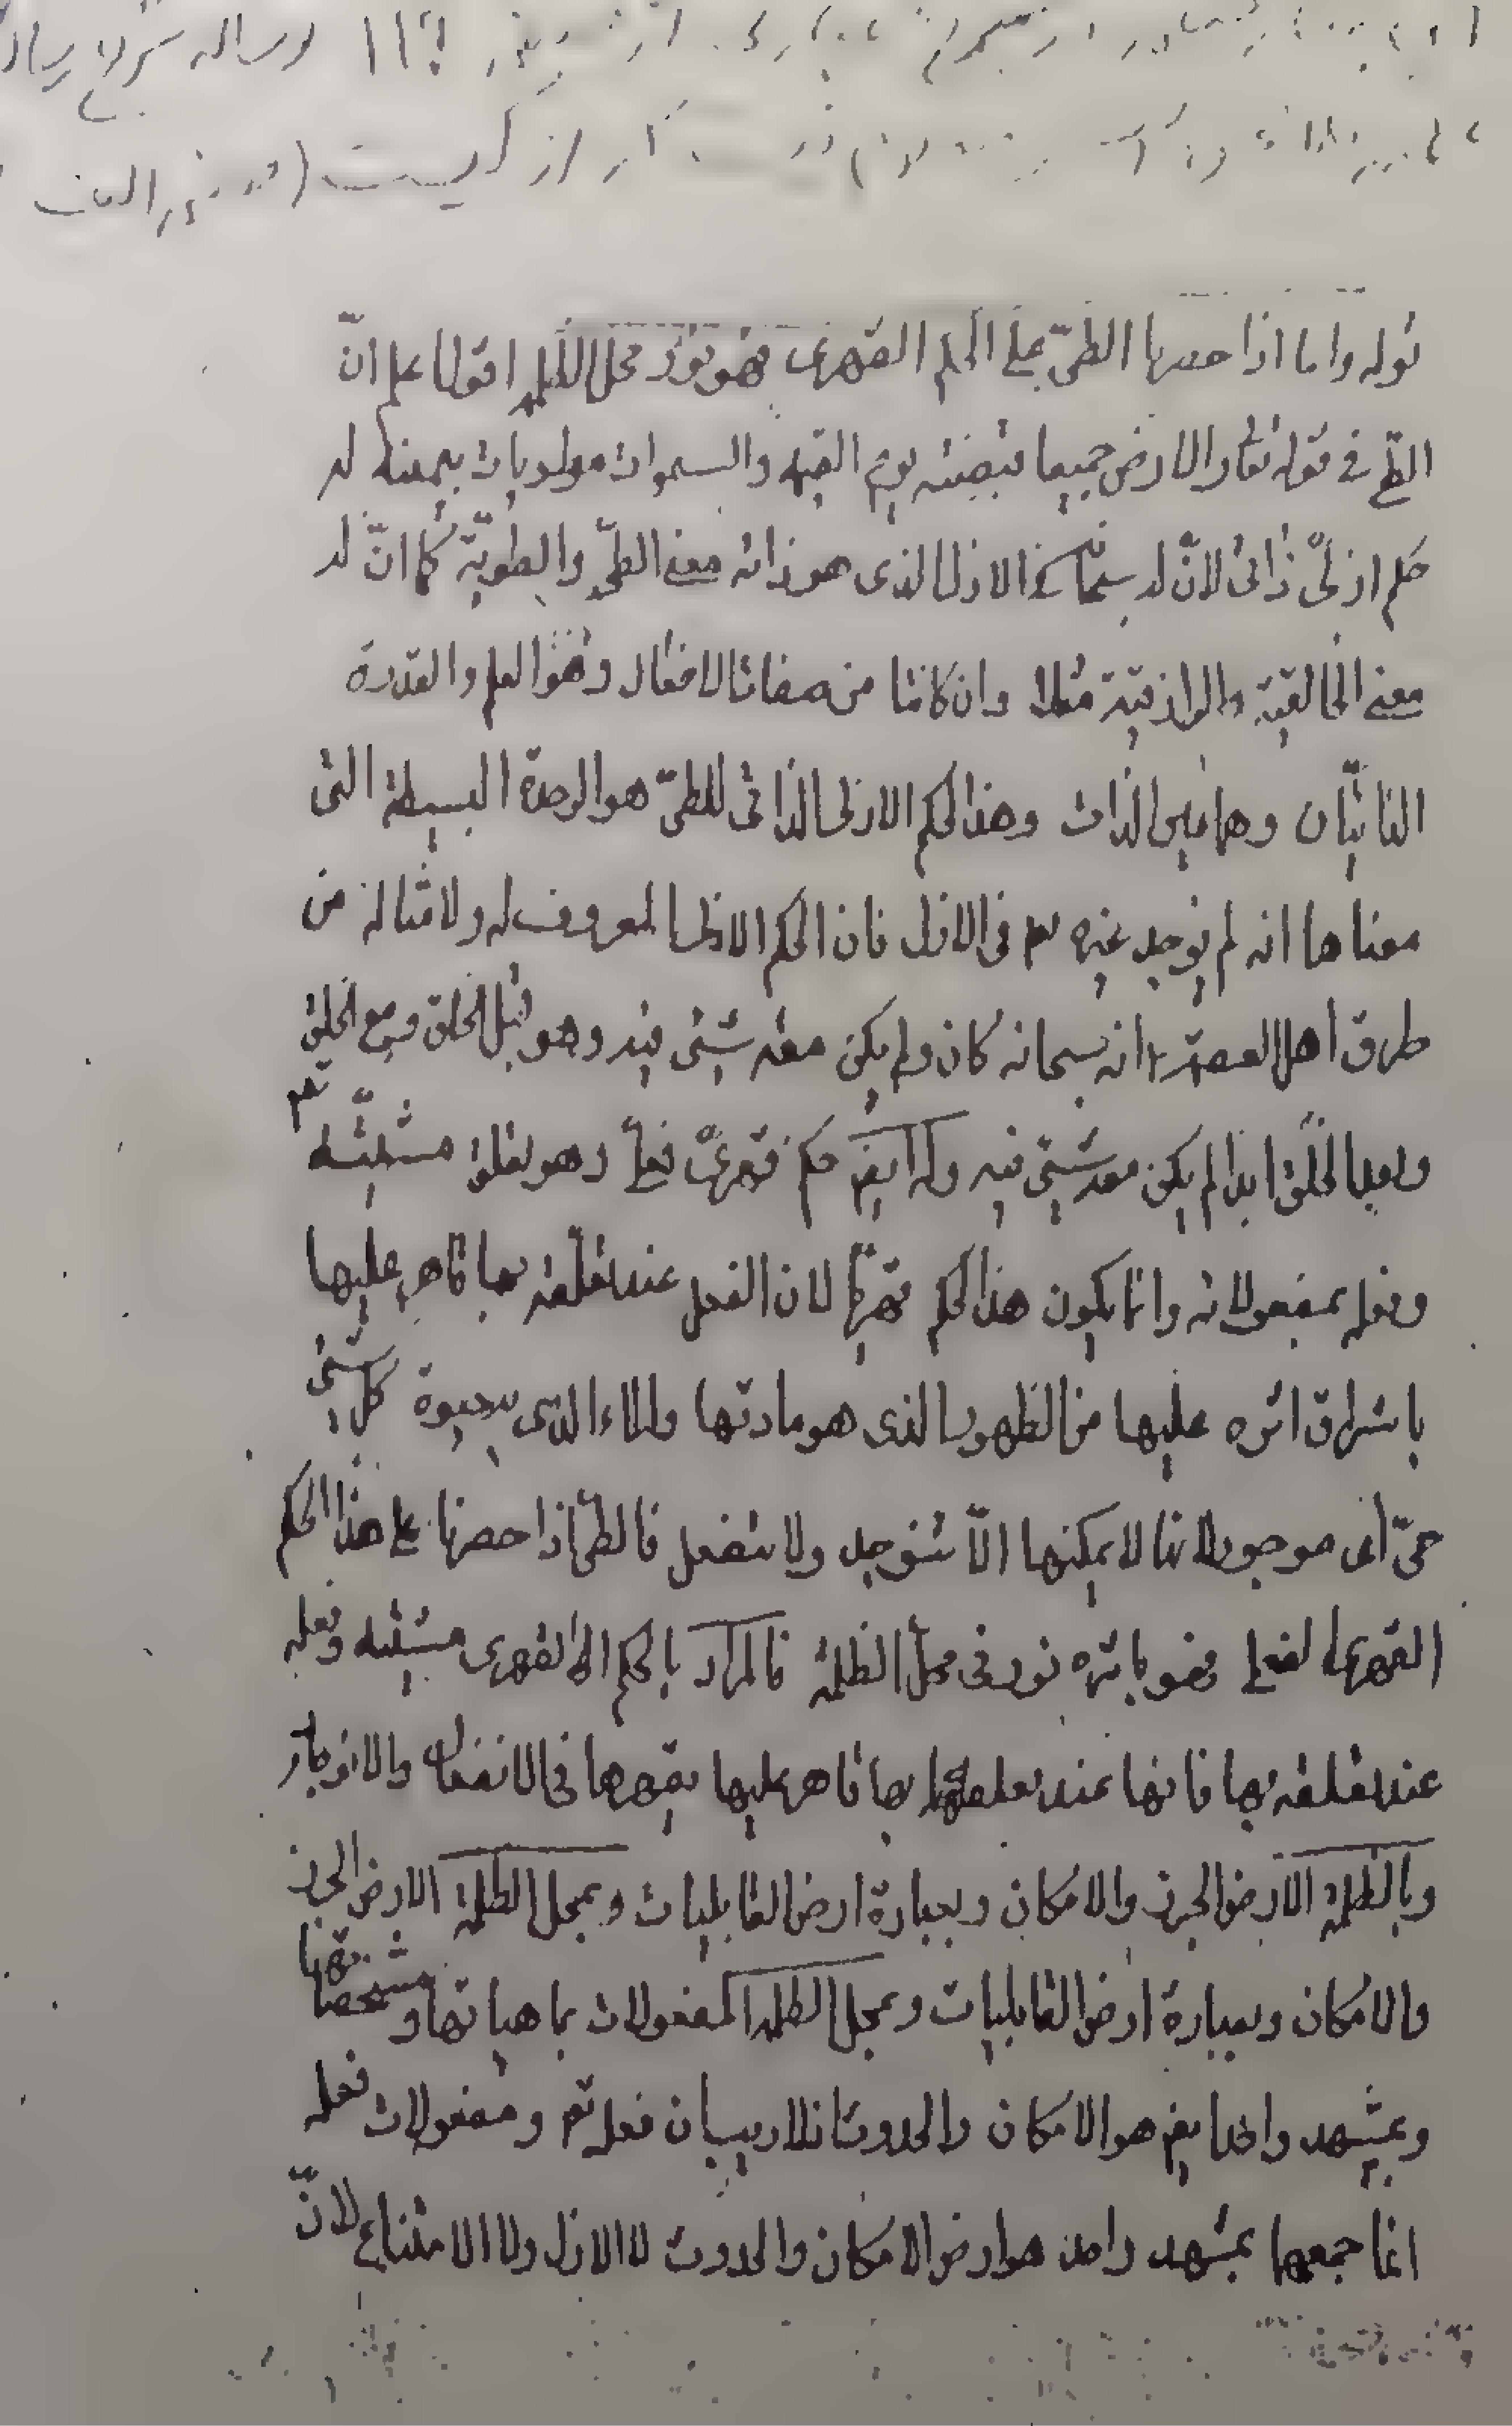 رساله شرح
از كيست
قوله واما اذا حصرنا الطىّ على الحكم القهرى فهو نور محل الظلمة اقول اعلم انّ
الطى فى قوله تعا والارض جميعا قبضته يوم القيمة والسموات مطويات بيمينه له
حكم ازلىّ ذاتى لانّ له سبحانه فى الازل الذى هو ذاته معنى الطىّ والطويّة كما انّ له
معنى الخالقية والرازقيّة مثلا وان كانتا من صفات الافعال وهو العلم والقدرة
الذاتيّان وهما عين الذات وهذا الحكم الازلى الذاتى للطىّ هو الوحدة البسيطة التى
معناها انه لم يوجد غيره فى الازل فان الحكم الازلى المعروف له ولامثاله من
طرق اهل العصمة انه سبحانه كان ولم يكن معه شىء فيه وهو قبل الخلق ومع الخلق
وبعد الخلق ابدا لم يكن معه شىء فيه وله ايضم حكم قهرىّ فعلىّ وهو تعلق مشيّته تعم
وفعله بمفعولاته وانما يكون هذا الحكم قهريّا لان الفعل عند تعلّقه بها قاهر عليها
باشراق اثره عليها من الظهور الذى هو مادتها والماء الذى به حيوة كل شىء
حىّ اى موجود لانها لا يمكنها الاّ تنوجد ولا تنفعل فالطىّ اذا حصرنا على هذا الحكم
القهرى الفعلى فهو باثره نور فى محل الظلمة فالمراد بالحكم القهرى مشيّته وفعله
عند تعلقه بها فانها عند تعلقها بها قاهر عليها يقهرها فى الانفعال والانوجاد
وبالظلمة الارض الجرز والامكان وبعبارة ارض القابليات وبمحل الظلمة الارض الجرز
والامكان وبعبارة ارض القابليات وبمحل الظلمة المفعولات بماهياتها ومشخصاتها
وبمشهد واحد ايضم هو الامكان والحدوث فلا ريب ان فعله تعم ومفعولات فعله
انما جمعها بمشهد واحد هو ارض الامكان والحدوث لا الازل ولا الامتناع لانّ